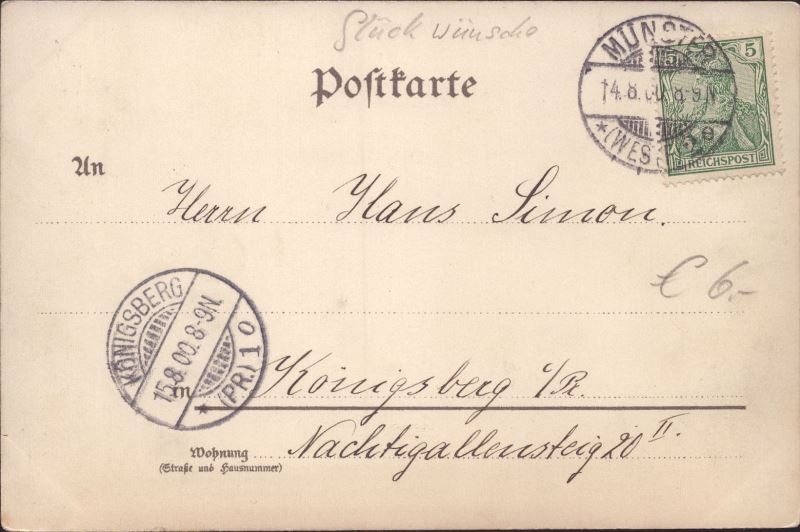 Glückwünsche
Postkarte
MÜNSTER
14.8.00.8-9N.
*(WESTF.)
5 5
REICHSPOST
An
Herrn Hans Simon.
€ 6.-
KÖNIGSBERG
15.8.00.8-9N.
*(PR.)10
in Königsberg i/Pr.
Nachtigallensteig 20 II.
Wohnung
(Straße und Hausnummer)